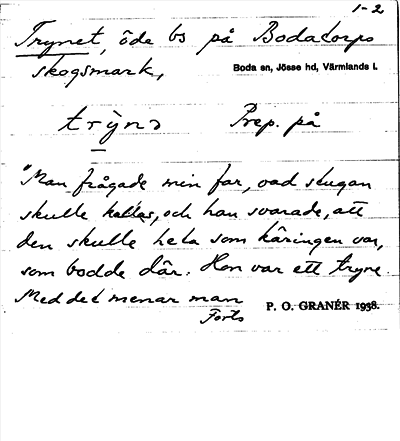 1-2
Trynet, öde bs på Bodatorps
skogsmark,
Boda sn, Jösse hd, Värmlands l.
Prep. på
"Man frågade min far, vad stugan
skulle kallas, och han svarade, att
den skulle heta som käringen var,
som bodde där. Hon var ett tryne.
Med det menar man
Forts
P. O. GRANÉR 1938.